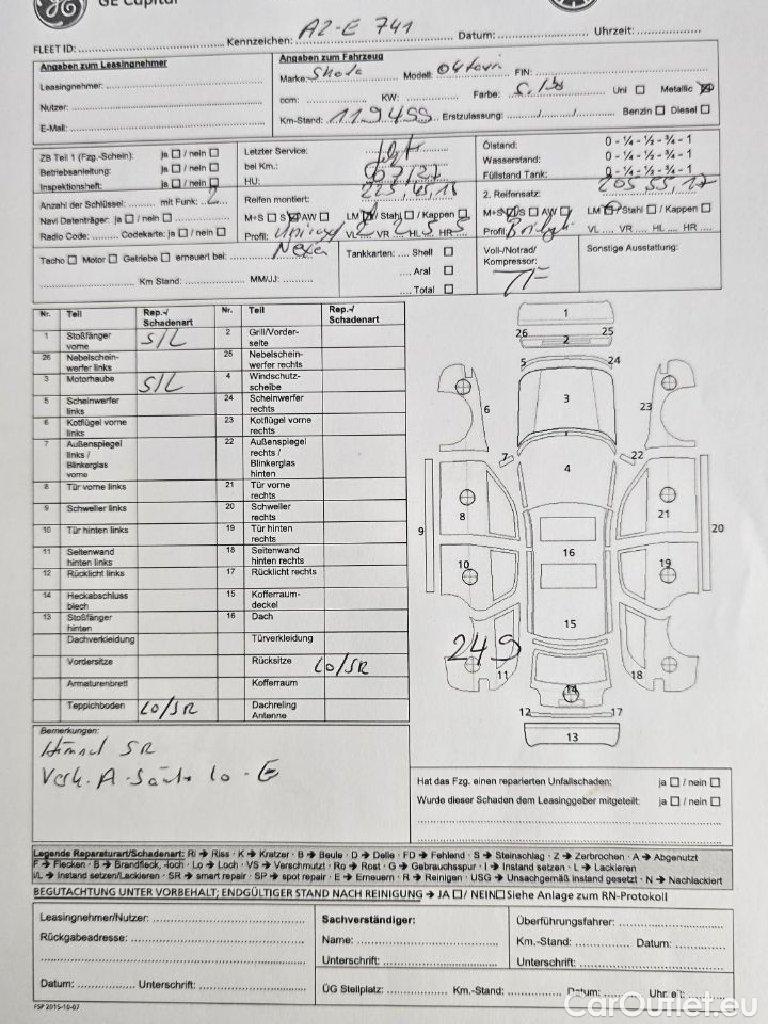 GE Capital
FLEET ID: Kennzeichen: AZ-E 741 Datum: Uhrzeit:
Angaben zum Leasingnehmer
Leasingnehmer:
Nutzer:
E-Mail:
Angaben zum Fahrzeug
Marke: Skoda Modell: Oktavia FIN:
ccm: KW: Farbe: Uni Metallic
Km-Stand: 119455 Erstzulassung: / / Benzin Diesel
ZB Teil 1 (Fzg.-Schein): ja / nein
Betriebsanleitung: ja / nein
Inspektionsheft: ja / nein
Anzahl der Schlüssel: mit Funk: 2
Navi Datenträger: ja / nein
Radio Code: Codekarte: ja / nein
Letzter Service:
bei Km.:
HU: 07/27
Reifen montiert:
M+S S AW LM Stahl / Kappen
Profil: VL VR HL HR
Ölstand: 0 - ¼ - ½ - ¾ - 1
Wasserstand: 0 - ¼ - ½ - ¾ - 1
Füllstand Tank: 0 - ¼ - ½ - ¾ - 1
2. Reifensatz: 205 55, 17
M+S S AW LM Stahl / Kappen
Profil: VL HL VR HR:
Tacho Motor Getriebe erneuert bei:
Km Stand: MM/JJ:
Tankkarten: Shell
Aral
Total
Voll-/Notrad/
Kompressor:
Sonstige Ausstattung:
Nr. Teil Rep.-/ Schadenart Nr. Teil Rep.-/ Schadenart
1 Stoßfänger vorne S/L 2 Grill/Vorder-seite
26 Nebelschein-werfer links 25 Nebelschein-werfer rechts
3 Motorhaube S/L 4 Windschutz-scheibe
5 Scheinwerfer links 24 Scheinwerfer rechts
6 Kotflügel vorne links 23 Kotflügel vorne rechts
7 Außenspiegel links / Blinkerglas vorne 22 Außenspiegel rechts / Blinkerglas hinten
8 Tür vorne links 21 Tür vorne rechts
9 Schweller links 20 Schweller rechts
10 Tür hinten links 19 Tür hinten rechts
11 Seitenwand hinten links 18 Seitenwand hinten rechts
12 Rücklicht links 17 Rücklicht rechts
14 Heckabschluss blech 15 Kofferraum-deckel
13 Stoßfänger hinten 16 Dach
Dachverkleidung Türverkleidung
Vordersitze Rücksitze LO/SR
Armaturenbrett Kofferraum
Teppichboden LO/SR Dachreling Antenne
1
26 25
2
5 24
3
6 23
7 22
4
8 21
9 20
16
10 19
15
249
11 18
14
12 17
13
Bemerkungen:
Himmel SR
Verk. A-Säule lo - E
Hat das Fzg. einen reparierten Unfallschaden: ja / nein
Wurde dieser Schaden dem Leasinggeber mitgeteilt: ja / nein
Legende Reparaturart/Schadenart: Ri → Riss · K → Kratzer · B → Beule · D → Delle · FD → Fehlend · S → Steinschlag · Z → Zerbrochen · A → Abgenutzt
F → Flecken · B → Brandfleck, -loch · Lo → Loch · VS → Verschmutzt · Ro → Rost · G → Gebrauchsspur · I → Instand setzen · L → Lackieren
I/L → Instand setzen/Lackieren · SR → smart repair · SP → spot repair · E → Erneuern · R → Reinigen · USG → Unsachgemäß instand gesetzt · N → Nachlackiert
BEGUTACHTUNG UNTER VORBEHALT; ENDGÜLTIGER STAND NACH REINIGUNG → JA / NEIN Siehe Anlage zum RN-Protokoll
Leasingnehmer/Nutzer:
Rückgabeadresse:
Datum: Unterschrift:
Sachverständiger:
Name:
Unterschrift:
ÜG Stellplatz: Km.-Stand: Datum: Uhrzeit:
Überführungsfahrer:
Km.-Stand: Datum:
Unterschrift:
FSP 2015-10-07
CarOutlet.eu